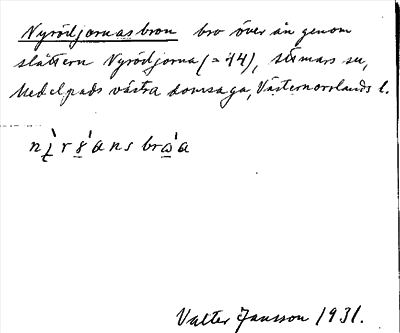 Nyrödjornasbron bro över ån genom
slåttern Nyrödjorna (= 44), Stömars sn,
Medelpads västra domsaga, Västernorrlands l.
Valter Jansson 1931.